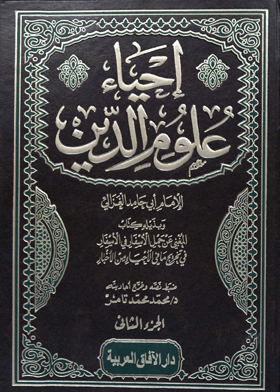 إحياء
علوم الدين
للإمام أبي حامد الغزالي
وبذيله كتاب
المغني عن حمل الأسفار في الأسفار
في تخريج ما في الإحياء من الأخبار
ضبط نصه وخرج أحاديثه
د/محمد محمد تامر
الجزء الثاني
دار الآفاق العربية